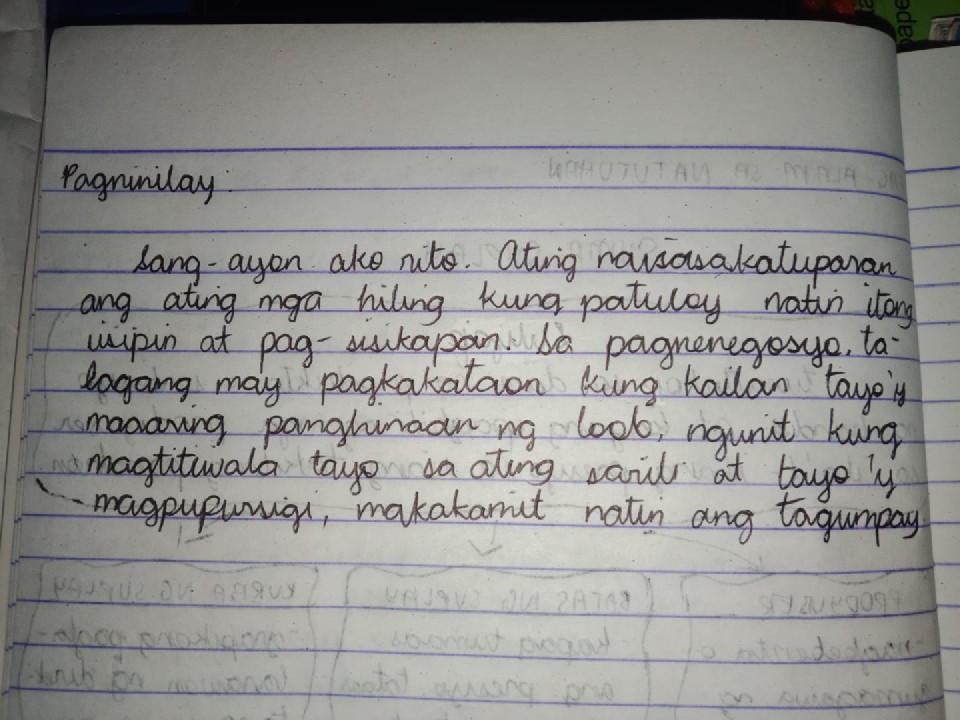 Pagninilay:
Sang-ayon ako nito. Ating naisasakatuparan
ang ating mga hiling kung patuloy natin itong
iisipin at pag-sisikapan. Sa pagnenegosyo, ta-
lagang may pagkakataon kung kailan tayo'y
maaaring panghinaan ng loob, ngunit kung
magtitiwala tayo sa ating sarili at tayo'y
magpupursigi, makakamit natin ang tagumpay